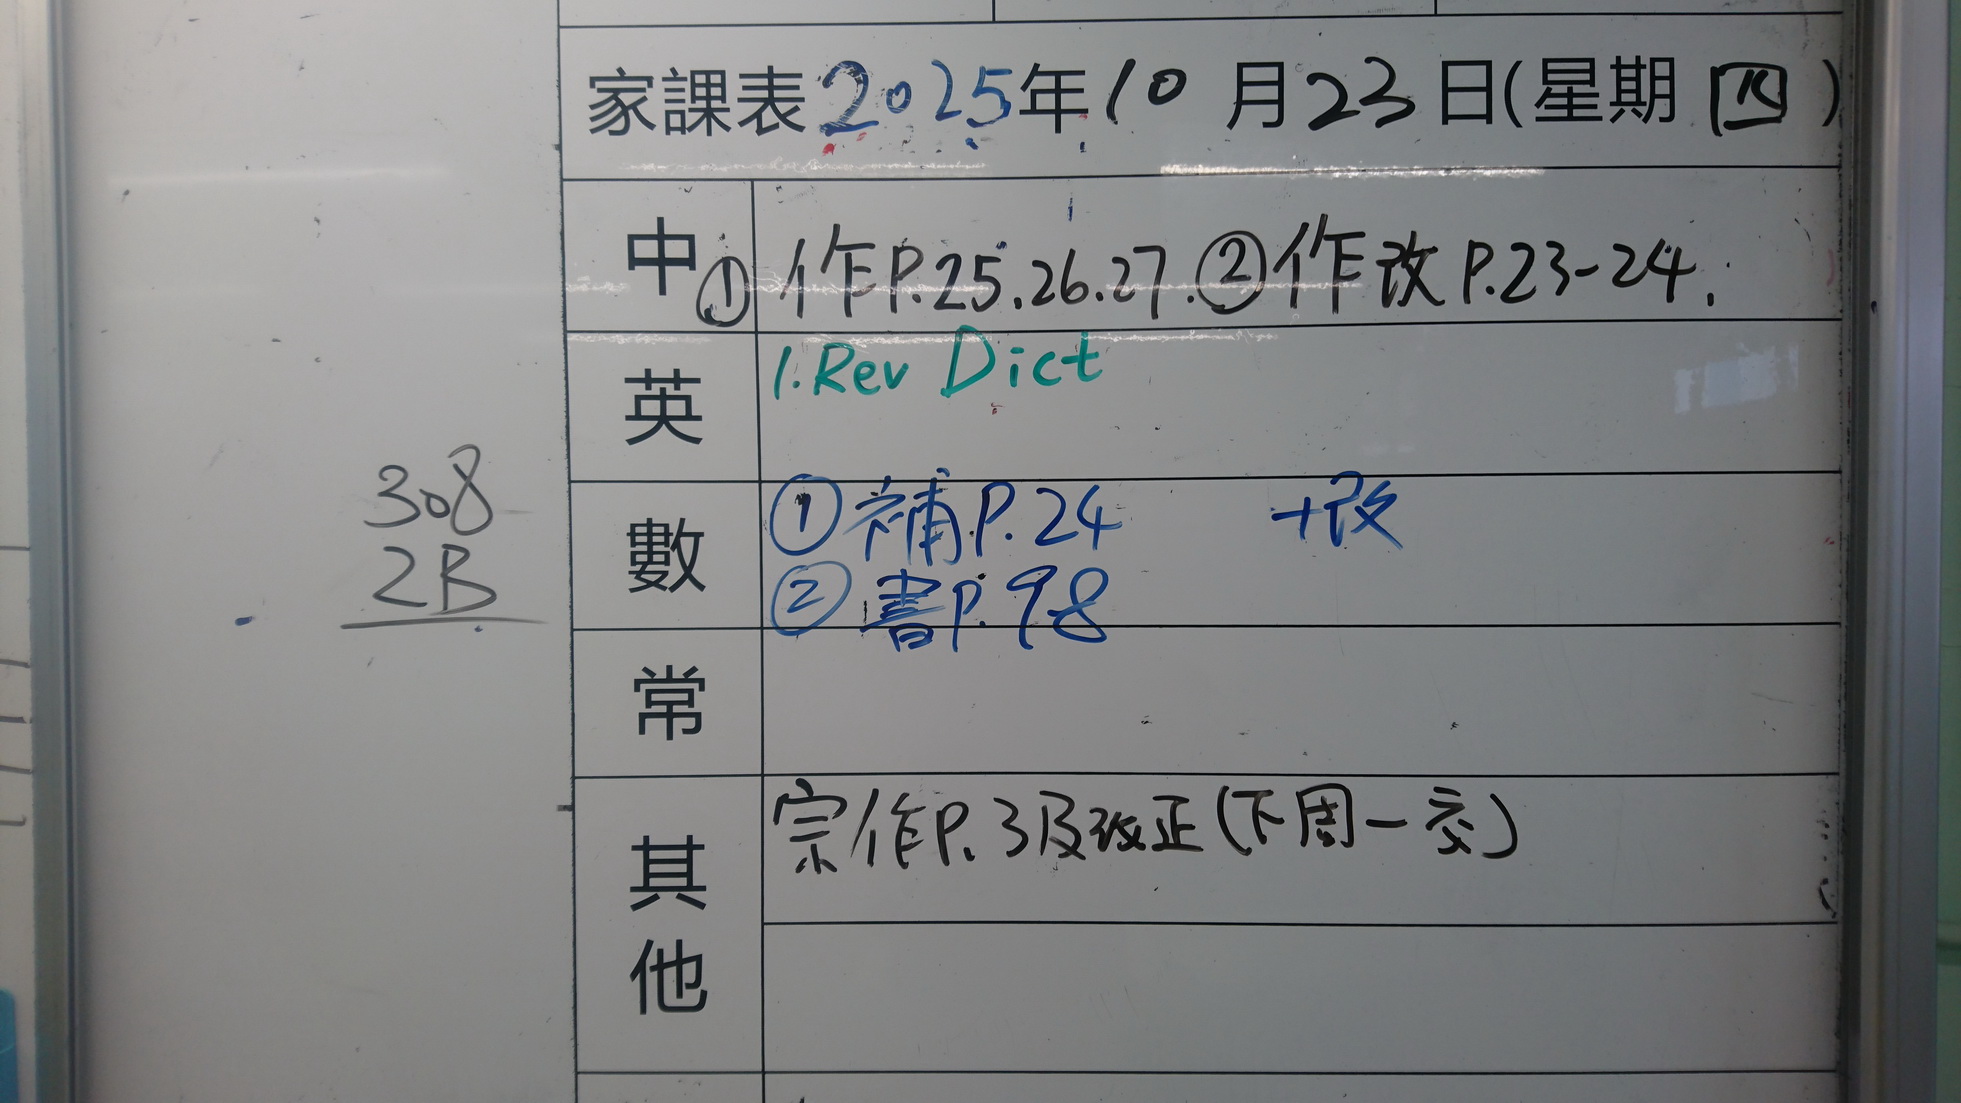 家課表2025年10月23日(星期四)
中 ①作P.25.26.27.②作改P.23-24.
英 1.Rev Dict
308
2B
數 ①補P.24 +改
②書P.98
常
其他 宗作P.3及改正(下周一交)